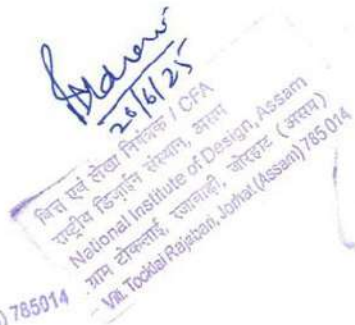 26/6/25
वित्त एवं लेखा नियंत्रक / CFA
राष्ट्रीय डिज़ाईन संस्थान, असम
National Institute of Design, Assam
ग्राम टोकलाई, राजाबाड़ी, जोरहाट (असम)
Vill. Tocklai Rajabari, Jorhat (Assam) 785 014
) 785014